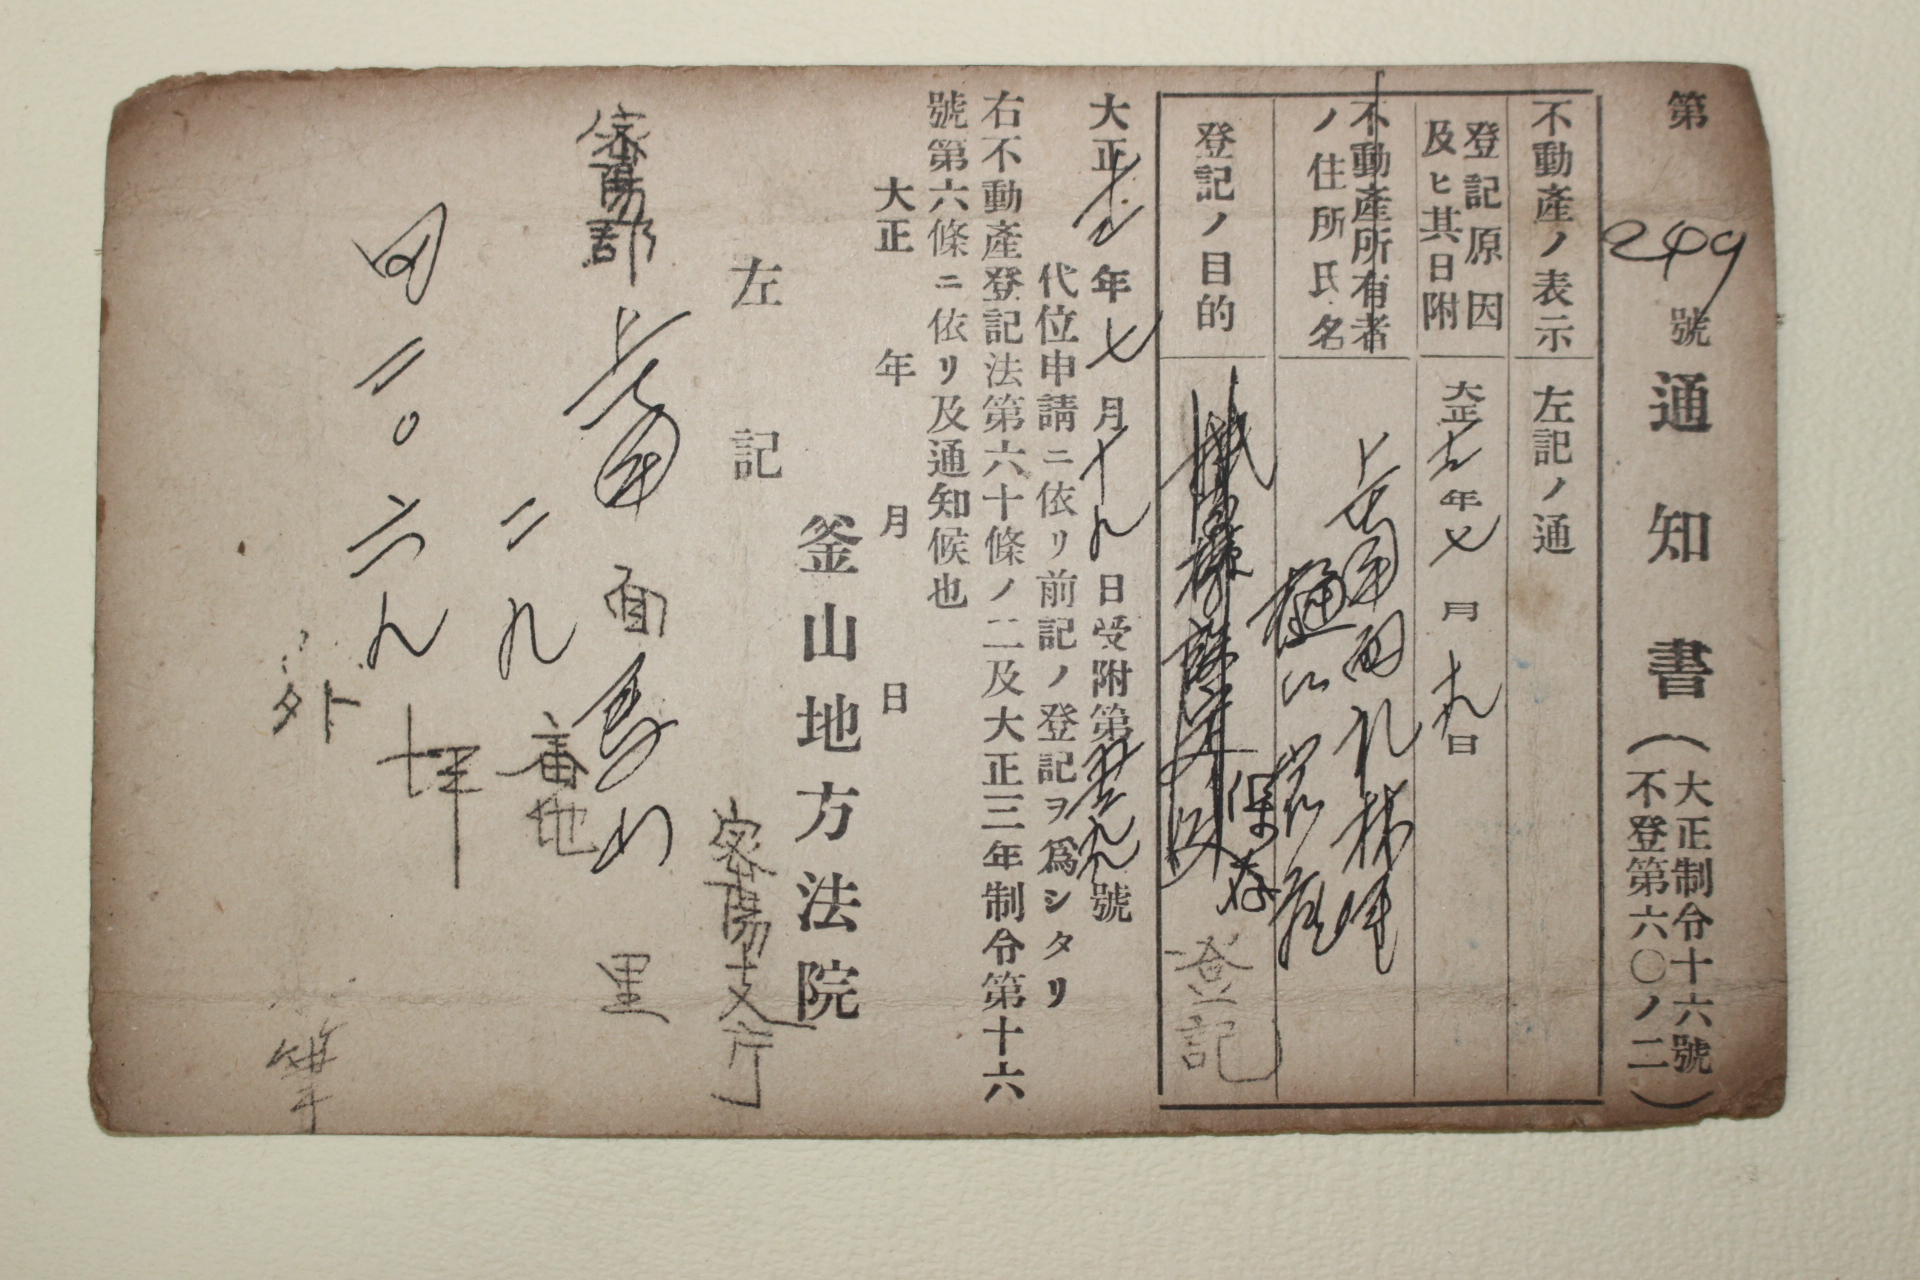 第249號
通知書(大正制令十六號
不登第六〇ノ二)
不動產ノ表示 左記ノ通
登記原因
及ヒ其日附 大正七年七月十九日
不動產所有者
ノ住所氏名 上南面礼林里
登記ノ目的 保存登記
大正七年七月十九日受附第號
代位申請ニ依リ前記ノ登記ヲ爲シタリ
右不動產登記法第六十條ノ二及大正三年制令第十六
號第六條ニ依リ及通知候也
大正 年 月 日
釜山地方法院
密陽支庁
左記
密陽郡上南面馬山里
二九番地
田二〇六九坪
外 筆